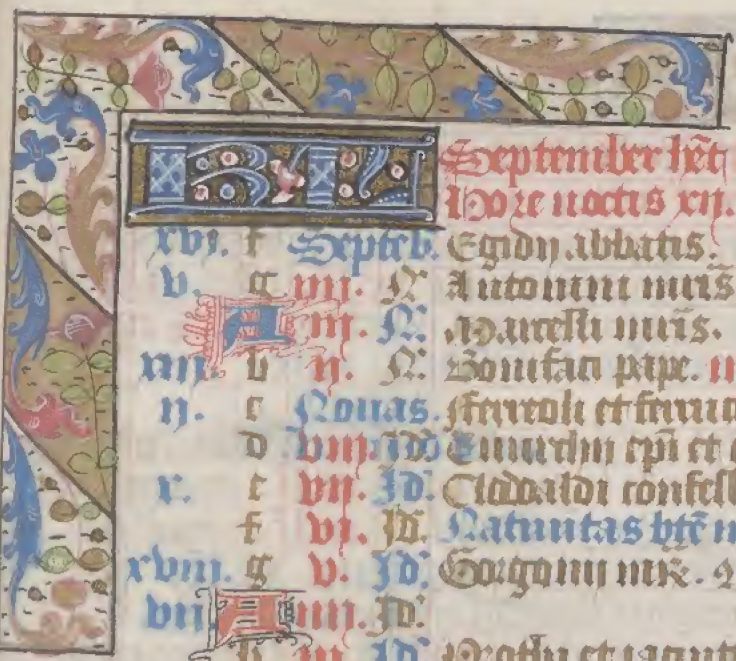 KL September hēt
Hore noctis xij.
xvj. f Septeb. Egidij abbatis.
v. g iiij. N Antonini m̄ris
A iij. N. Marcelli m̄ris.
xiij. b ij. N. Bonifaci pape.
ij. c Nonas. fferreoli et
d viij. Id Euurchii ep̄i et
x. e vij. Id. Clodoaldi confess
f vj. Id. Natiuitas bt̄e
xviij. g v. Id. Gorgonij
vij A iiij. Id.
b iij Id Prothi et iacint